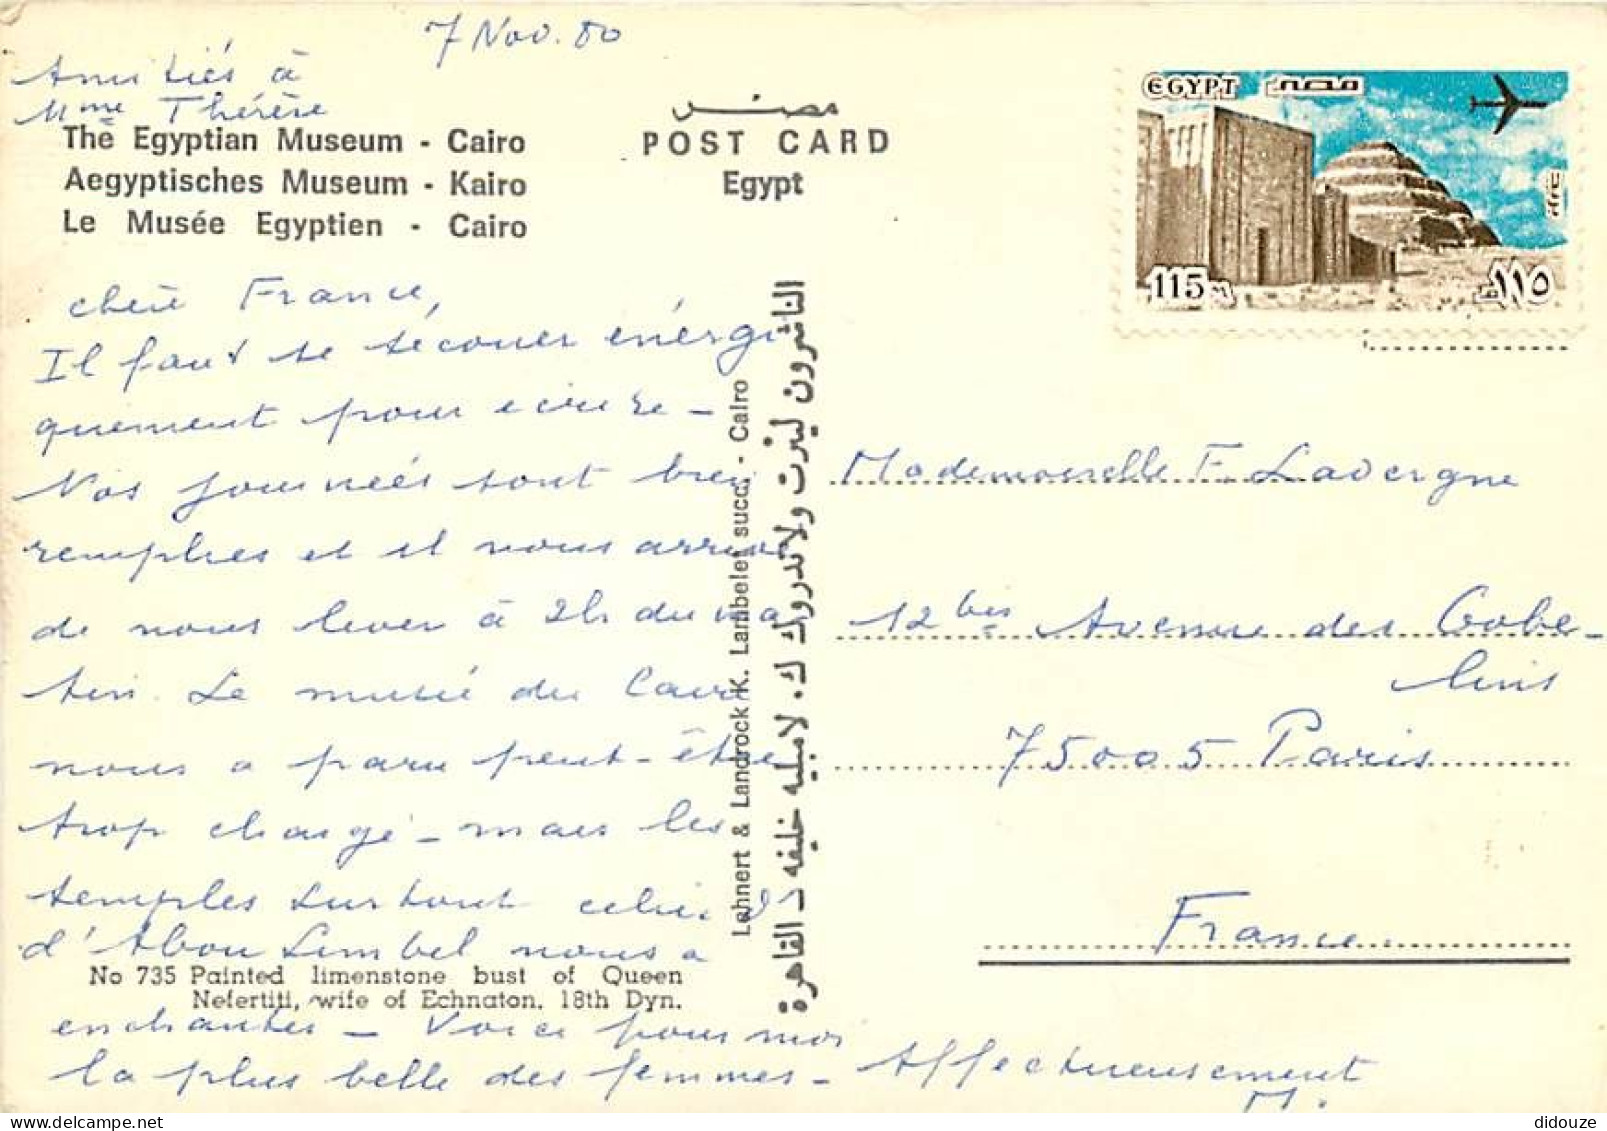 7 Nov. 80
Amitiés à
Mme Thérèse
The Egyptian Museum - Cairo
Aegyptisches Museum - Kairo
Le Musée Egyptien - Cairo
مصر
POST CARD
Egypt
EGYPT مصر
115 ١١٥
chère France,
Il faut se secouer énergi
quement pour écrire -
Nos journées sont bien
remplies et il nous arrive
de nous lever à 2h du ma
tin. Le musée du Caire
nous a paru peut-être
trop chargé - mais les
temples surtout celui
d'Abou Simbel nous a
No 735 Painted limenstone bust of Queen
Nefertiti, wife of Echnaton. 18th Dyn.
enchantés - Voici pour moi
la plus belle des femmes -
Affectueusement
M.
Lehnert & Landrock K. Lambelet succ. - Cairo
الناشرون لينرت ولاندروك ك. لامبليه خليفه - القاهرة
Mademoiselle F. Lavergne
12 bis Avenue des Gobe-
lins
75005 Paris
France
didouze